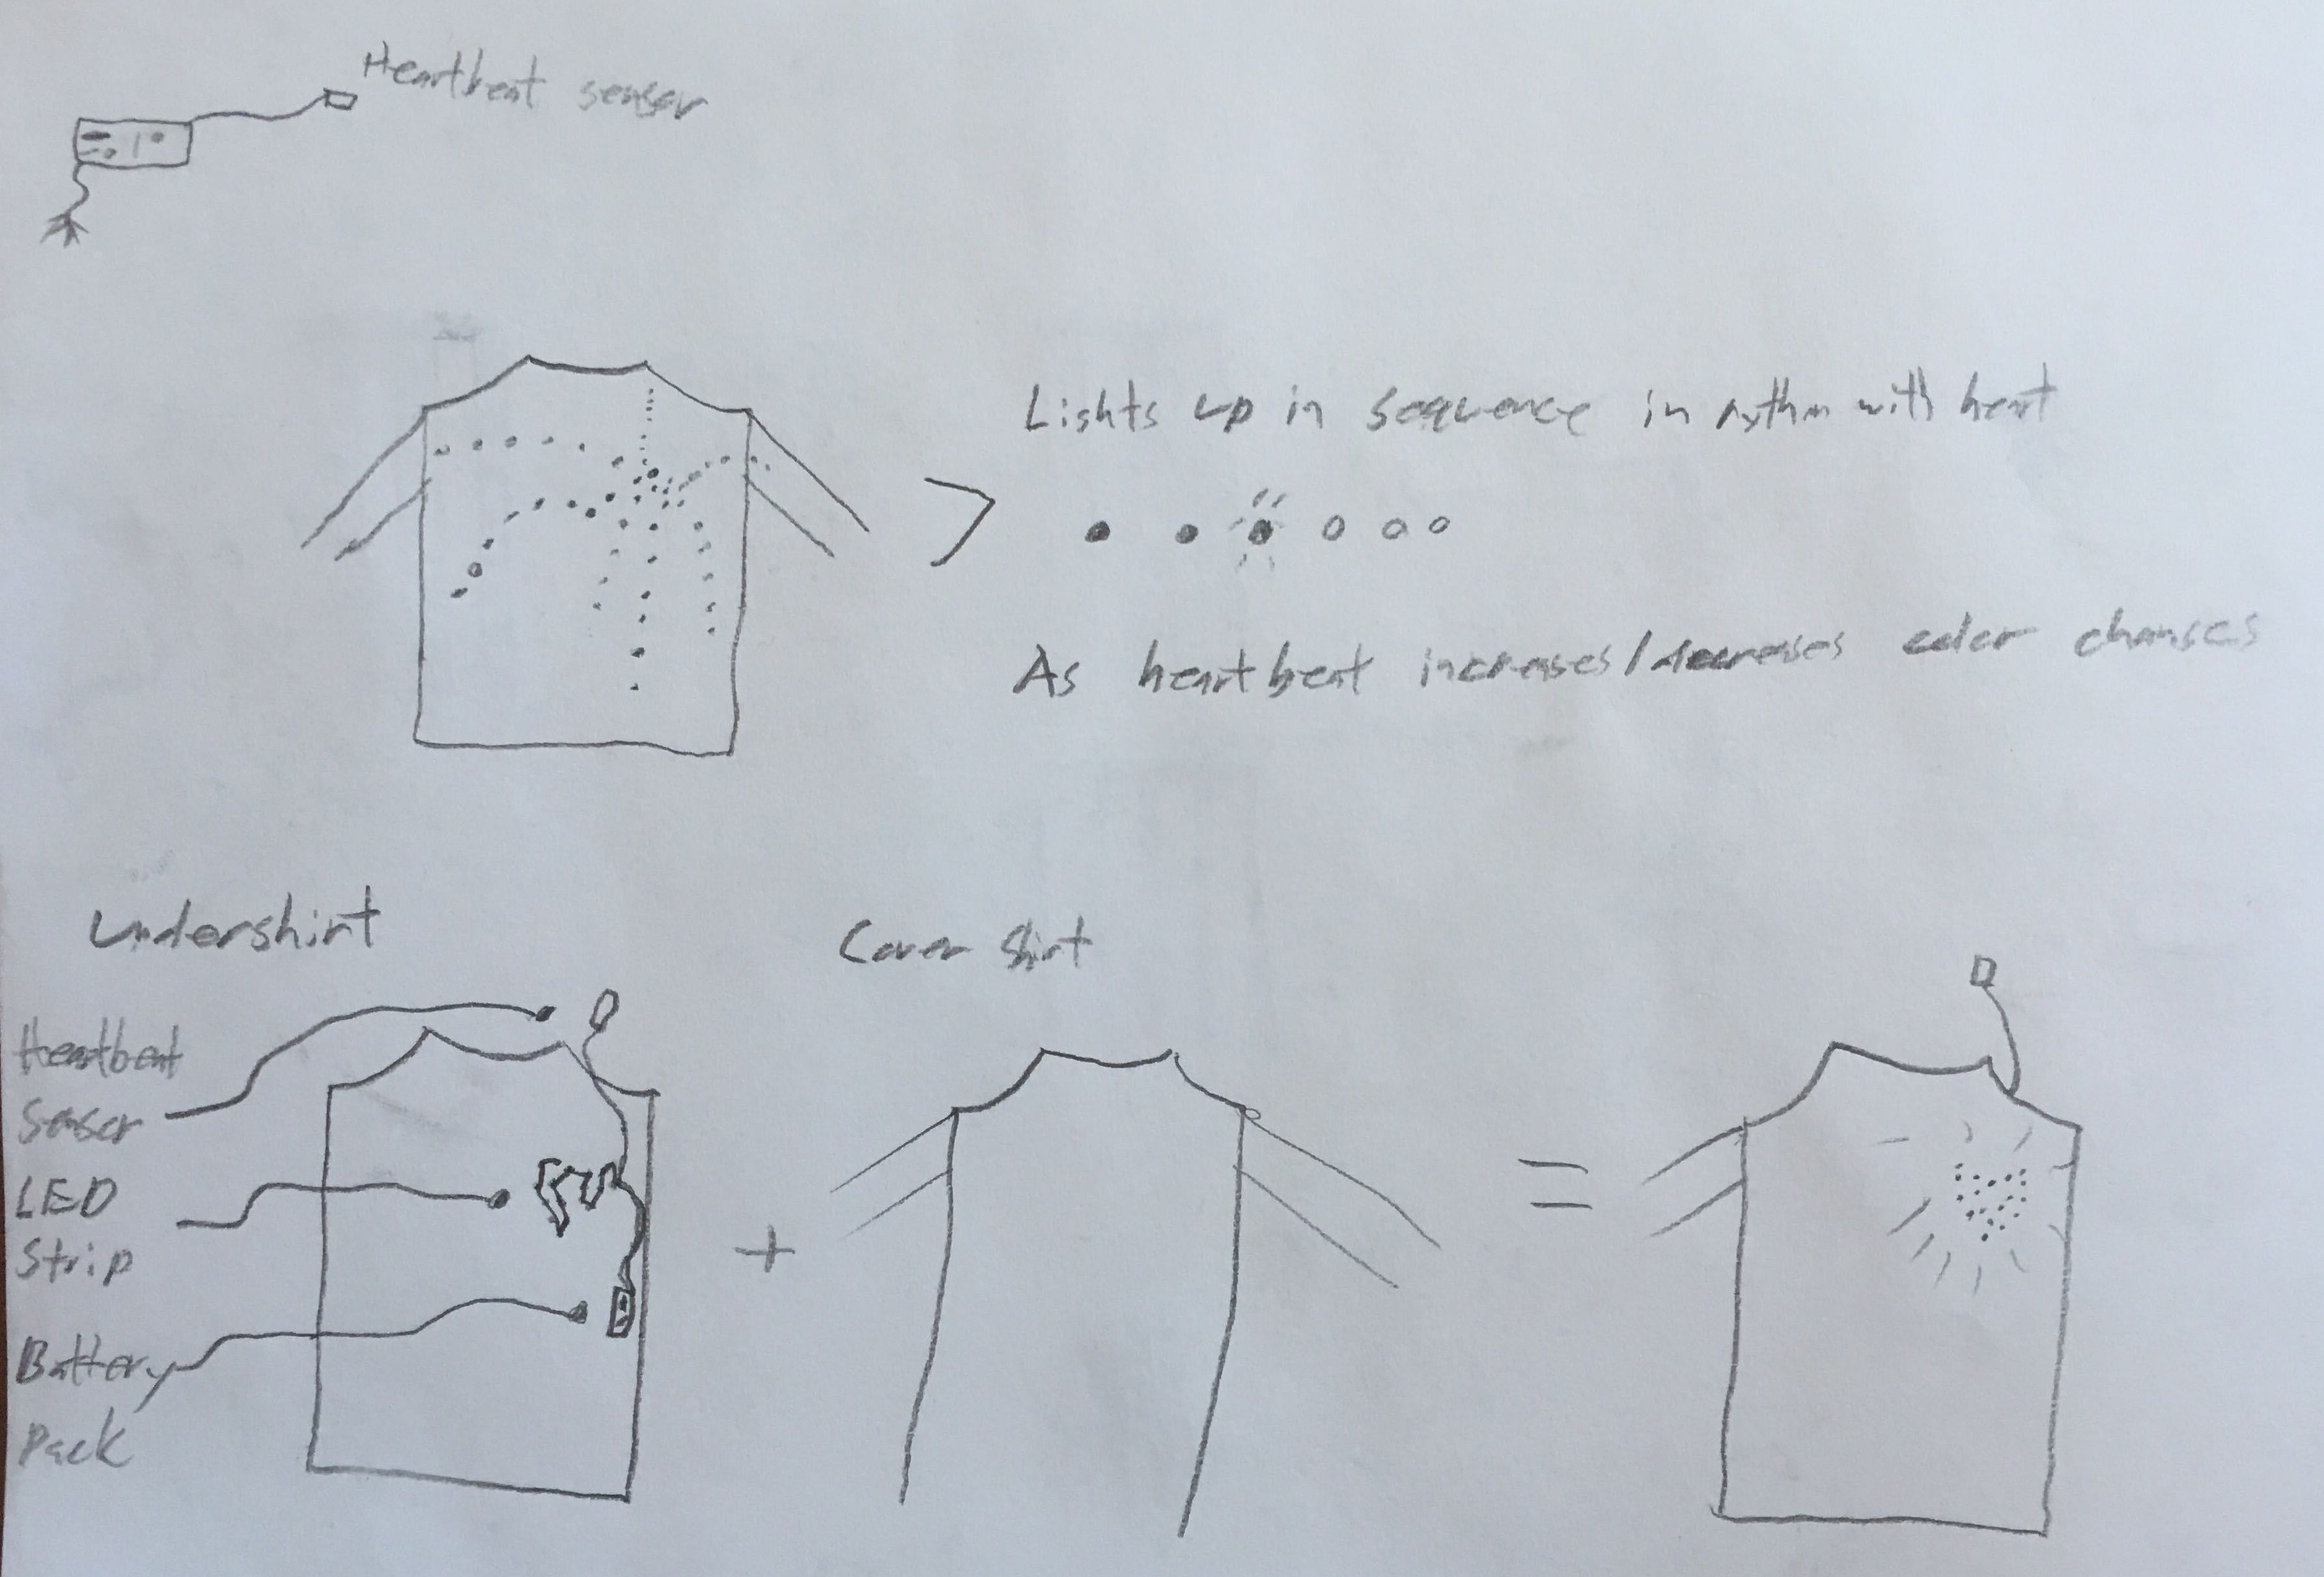 Heartbeat sensor
Lights up in sequence in rythm with heart
As heartbeat increases/decreases color changes
Undershirt
Cover Shirt
Heartbeat
Sensor
LED
Strip
Battery
Pack
+
=